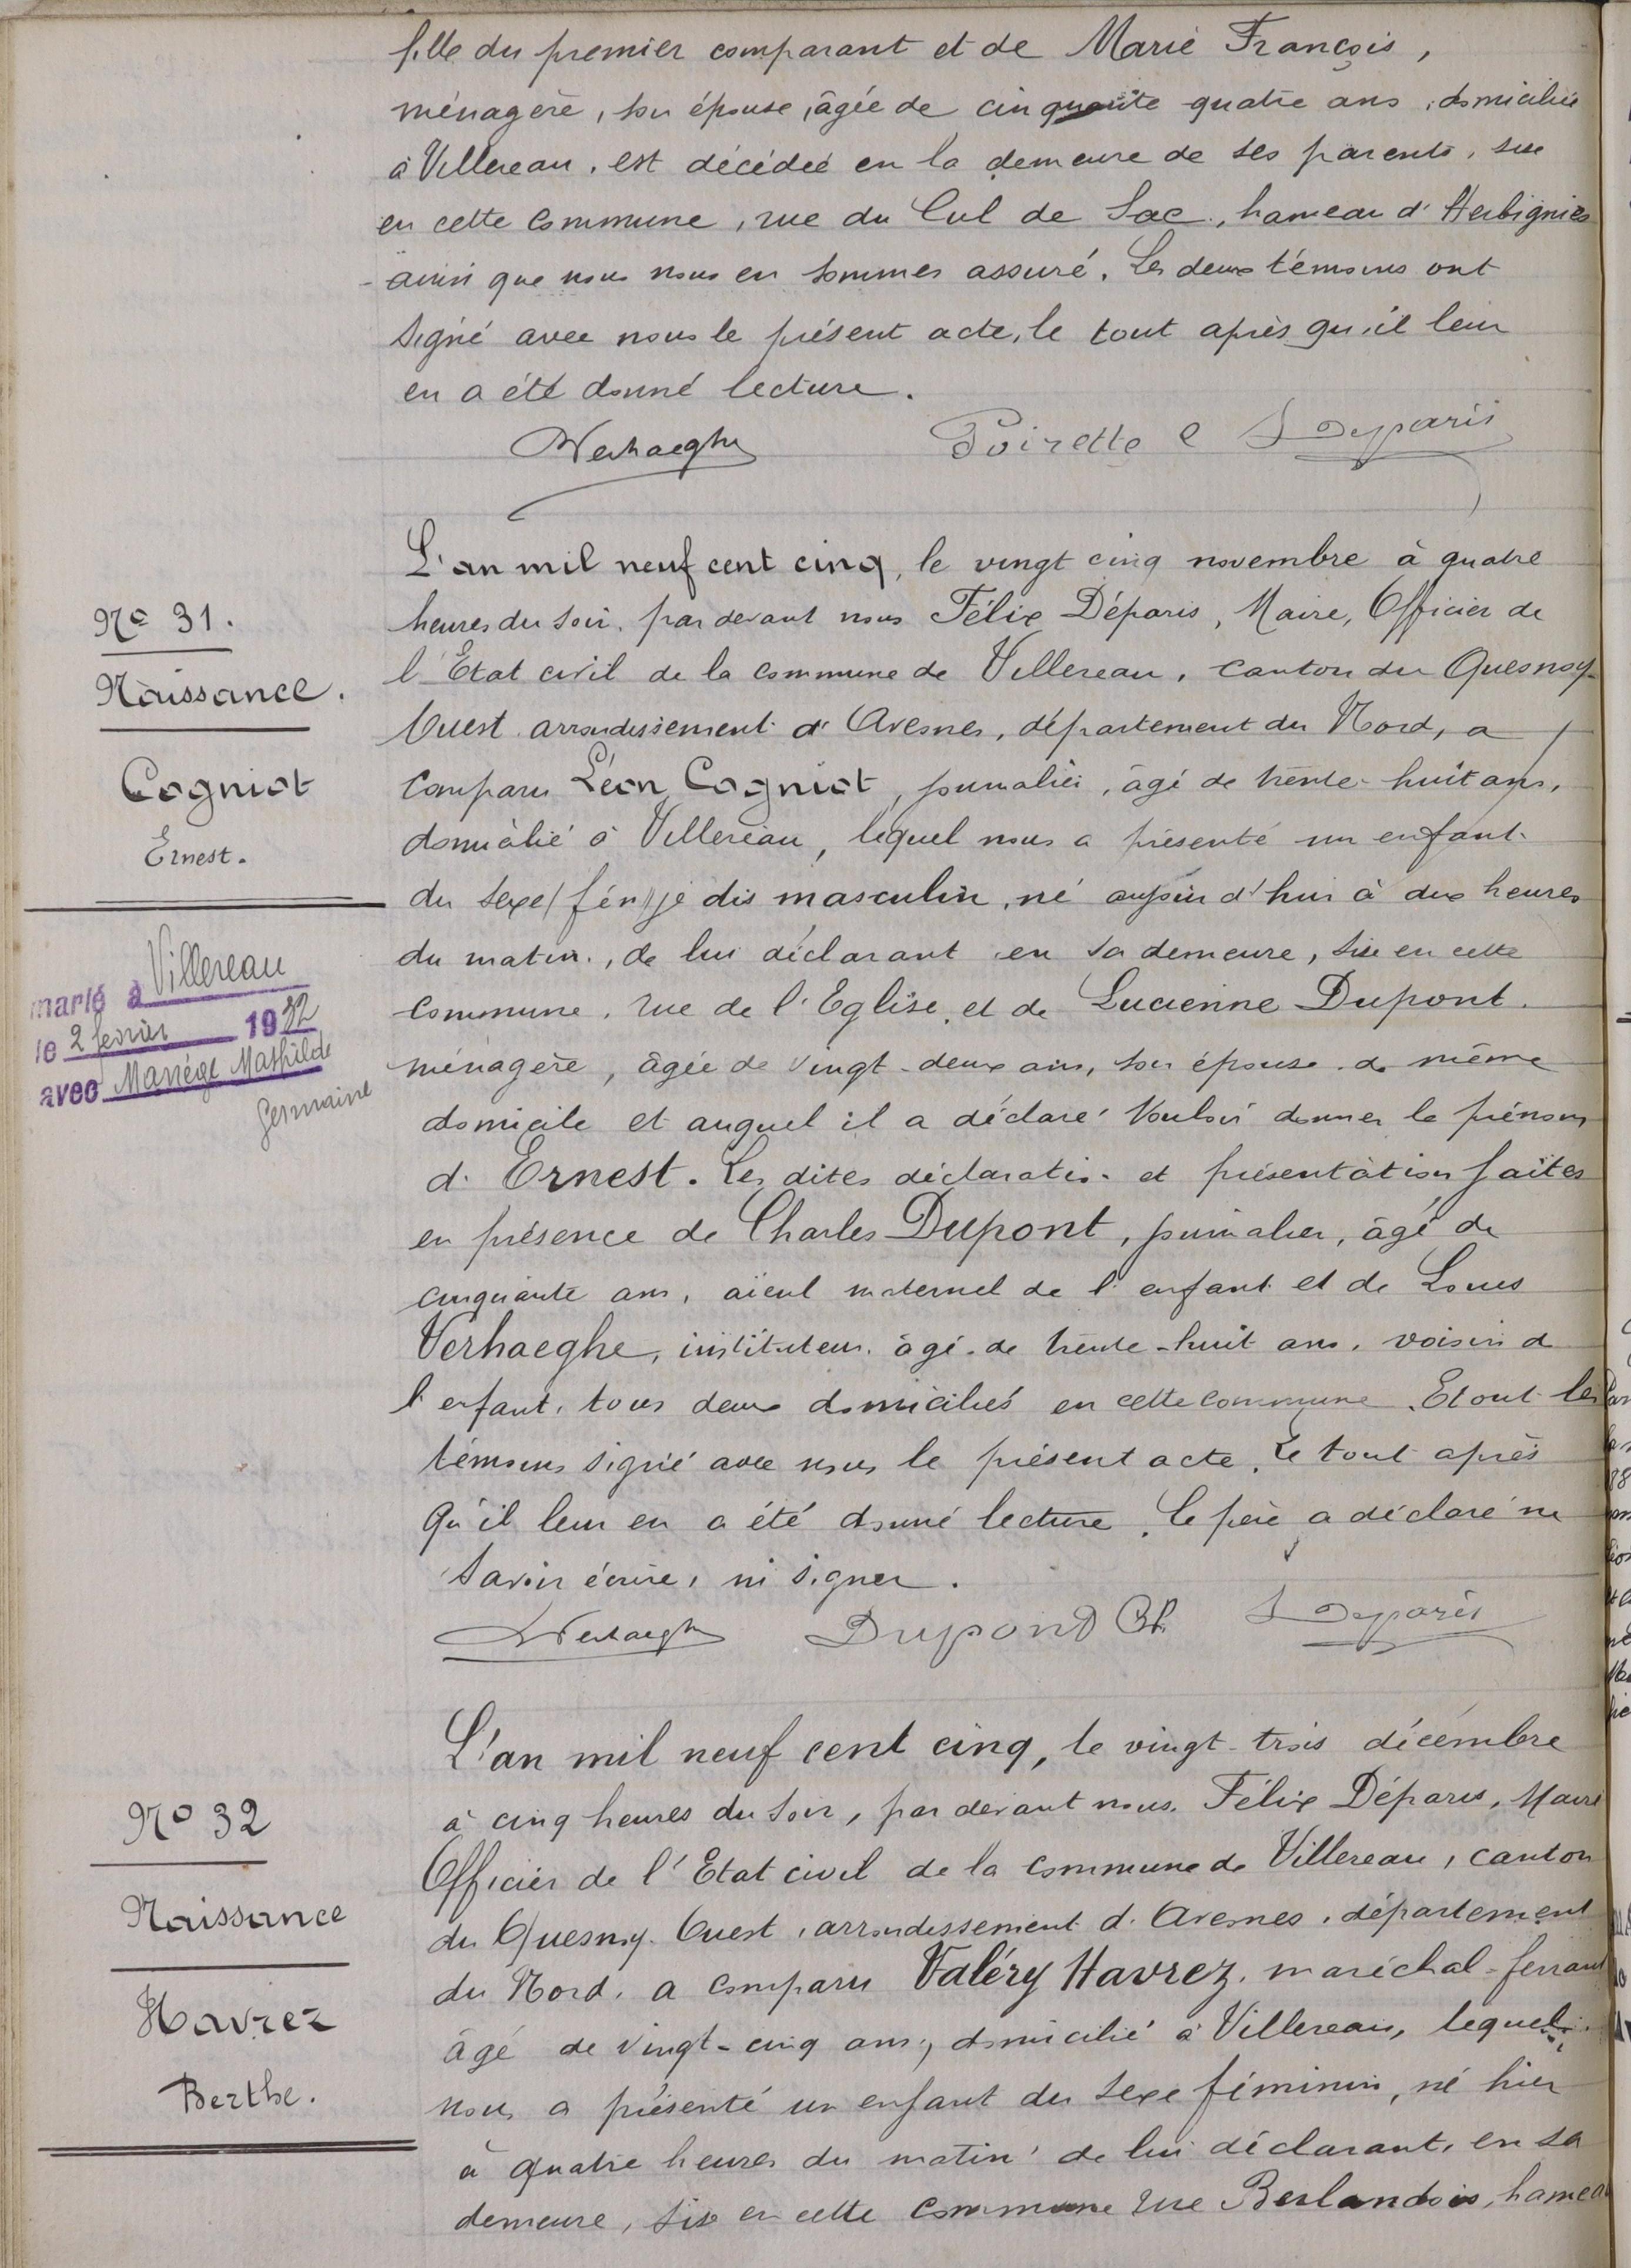 fille du premier comparant et de Marie François,
ménagère, son épouse, âgée de cinquante quatre ans, domiciliée
à Villereau, est décédée en la demeure de ses parents, sise
en cette commune, rue du Cul de Sac, hameau d'Herbignies
ainsi que nous nous en sommes assuré. Les deux témoins ont
signé avec nous le présent acte, le tout après qu'il leur
en a été donné lecture.
Verhaeghe Poirette e Déparis
L'an mil neuf cent cinq, le vingt cinq novembre à quatre
heures du soir, par devant nous Félix Déparis, Maire, Officier de
l'Etat civil de la commune de Villereau, canton du Quesnoy-
Ouest arrondissement d'Avesnes, département du Nord, a
comparu Léon Cogniot, journalier, âgé de trente-huit ans,
domicilié à Villereau, lequel nous a présenté un enfant
du sexe (fém) je dis masculin, né aujourd'hui à deux heures
du matin, de lui déclarant en sa demeure, sise en cette
commune, rue de l'Eglise, et de Lucienne Dupont,
ménagère, âgée de vingt-deux ans, son épouse de même
domicile et auquel il a déclaré vouloir donner le prénom
d'Ernest. Les dites déclaration et présentation faites
en présence de Charles Dupont, journalier, âgé de
cinquante ans, aïeul maternel de l'enfant et de Louis
Verhaeghe, instituteur, âgé de trente-huit ans, voisin de
l'enfant, tous deux domiciliés en cette commune. Et ont les
témoins signé avec nous le présent acte, le tout après
qu'il leur en a été donné lecture. Le père a déclaré ne
savoir écrire, ni signer.
Verhaeghe Dupond Ch Déparis
L'an mil neuf cent cinq, le vingt-trois décembre
à cinq heures du soir, par devant nous, Félix Déparis, Maire
Officier de l'Etat civil de la commune de Villereau, canton
du Quesnoy-Ouest, arrondissement d'Avesnes, département
du Nord, a comparu Valéry Havrez, maréchal-ferrant
âgé de vingt-cinq ans, domicilié à Villereau, lequel
nous a présenté un enfant du sexe féminin, né hier
à quatre heures du matin de lui déclarant, en sa
demeure, sise en cette commune rue Berlandois, hameau
No 31.
Naissance.
Cogniot
Ernest.
marié à Villereau
le 2 février 1932
avec Manége Mathilde
Germaine
No 32
Naissance
Havrez
Berthe.